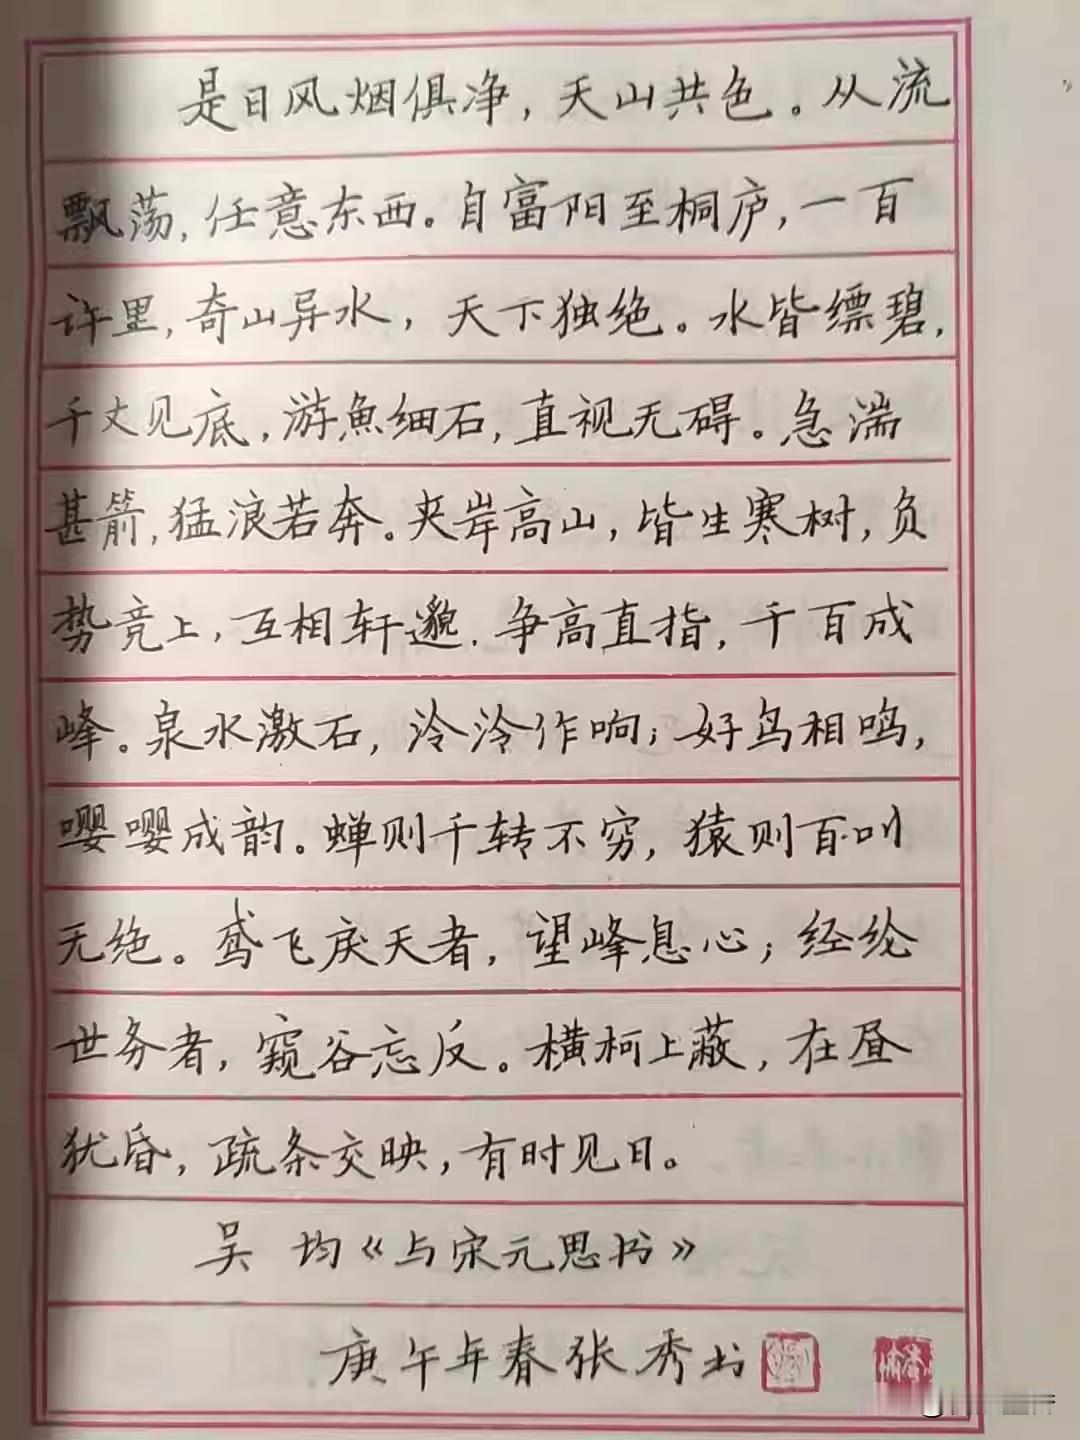 是日风烟俱净,天山共色。从流
飘荡,任意东西。自富阳至桐庐,一百
许里,奇山异水,天下独绝。水皆缥碧,
千丈见底,游魚细石,直视无碍。急湍
甚箭,猛浪若奔。夹岸高山,皆生寒树,负
势竞上,互相轩邈.争高直指,千百成
峰。泉水激石,泠泠作响;好鸟相鸣,
嘤嘤成韵。蝉则千转不穷,猿则百叫
无绝。鸢飞戾天者,望峰息心;经纶
世务者,窥谷忘反。横柯上蔽,在昼
犹昏,疏条交映,有时见日。
吴 均《与宋元思书》
庚午年春张秀书